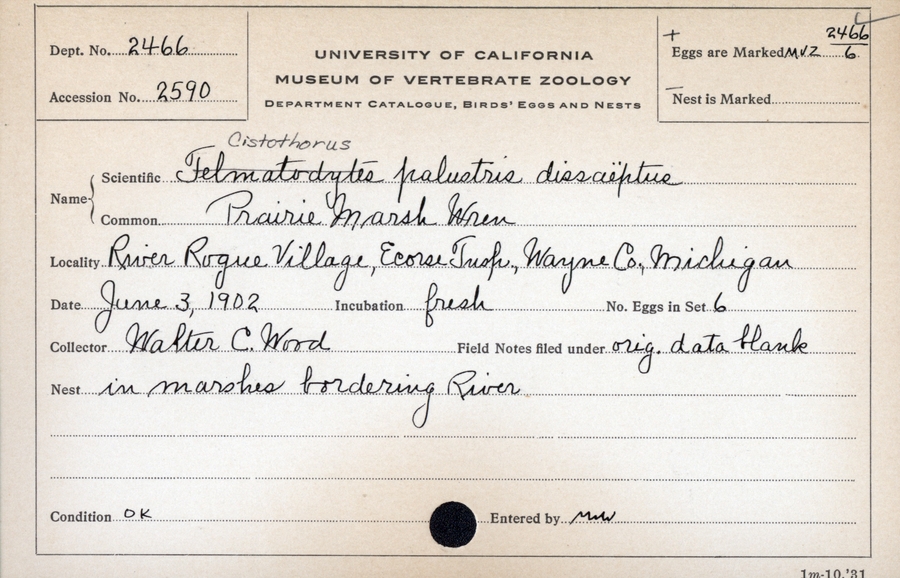 Dept. No. 2466
Accession No. 2590
UNIVERSITY OF CALIFORNIA
MUSEUM OF VERTEBRATE ZOOLOGY
DEPARTMENT CATALOGUE, BIRDS' EGGS AND NESTS
+ Eggs are Marked MVZ 2466/6
— Nest is Marked
Cistothorus
Name { Scientific Telmatodytes palustris dissaëptus
Common Prairie Marsh Wren
Locality River Rogue Village, Ecorse Twsp., Wayne Co., Michigan
Date June 3, 1902 Incubation fresh No. Eggs in Set 6
Collector Walter C. Wood Field Notes filed under orig. data blank
Nest in marshes bordering River
Condition OK Entered by
1m-10,'31